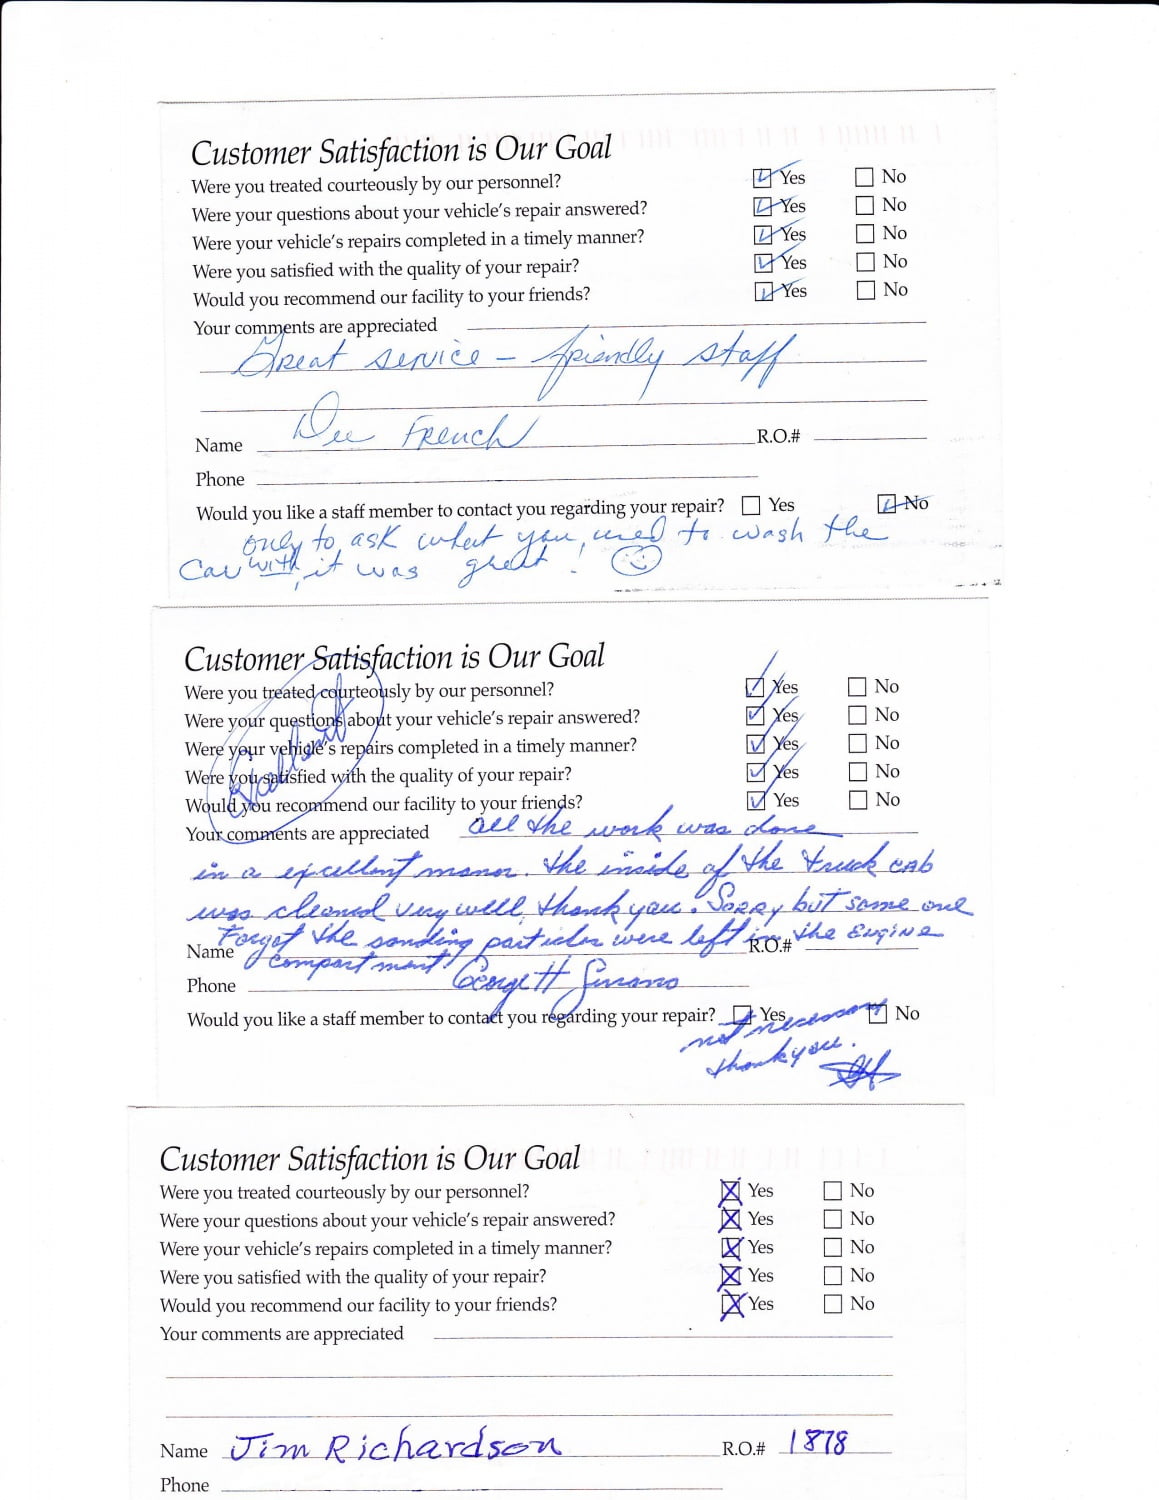 Customer Satisfaction is Our Goal
Were you treated courteously by our personnel? Yes No
Were your questions about your vehicle's repair answered? Yes No
Were your vehicle's repairs completed in a timely manner? Yes No
Were you satisfied with the quality of your repair? Yes No
Would you recommend our facility to your friends? Yes No
Your comments are appreciated
Great service - friendly staff
Name Dee French R.O.#
Phone
Would you like a staff member to contact you regarding your repair? Yes No
only to ask what you used to wash the
Car with, it was great!
Customer Satisfaction is Our Goal
Were you treated courteously by our personnel? Yes No
Were your questions about your vehicle's repair answered? Yes No
Were your vehicle's repairs completed in a timely manner? Yes No
Were you satisfied with the quality of your repair? Yes No
Would you recommend our facility to your friends? Yes No
Your comments are appreciated all the work was done
in a excellent manor. the inside of the truck cab
was cleaned very well, thank you. Sorry but some one
Forgot the sanding particles were left in the Engine
Name compartment! R.O.#
Phone George H
Would you like a staff member to contact you regarding your repair? Yes No
not necessary
thank you.
Customer Satisfaction is Our Goal
Were you treated courteously by our personnel? Yes No
Were your questions about your vehicle's repair answered? Yes No
Were your vehicle's repairs completed in a timely manner? Yes No
Were you satisfied with the quality of your repair? Yes No
Would you recommend our facility to your friends? Yes No
Your comments are appreciated
Name Jim Richardson R.O.# 1878
Phone